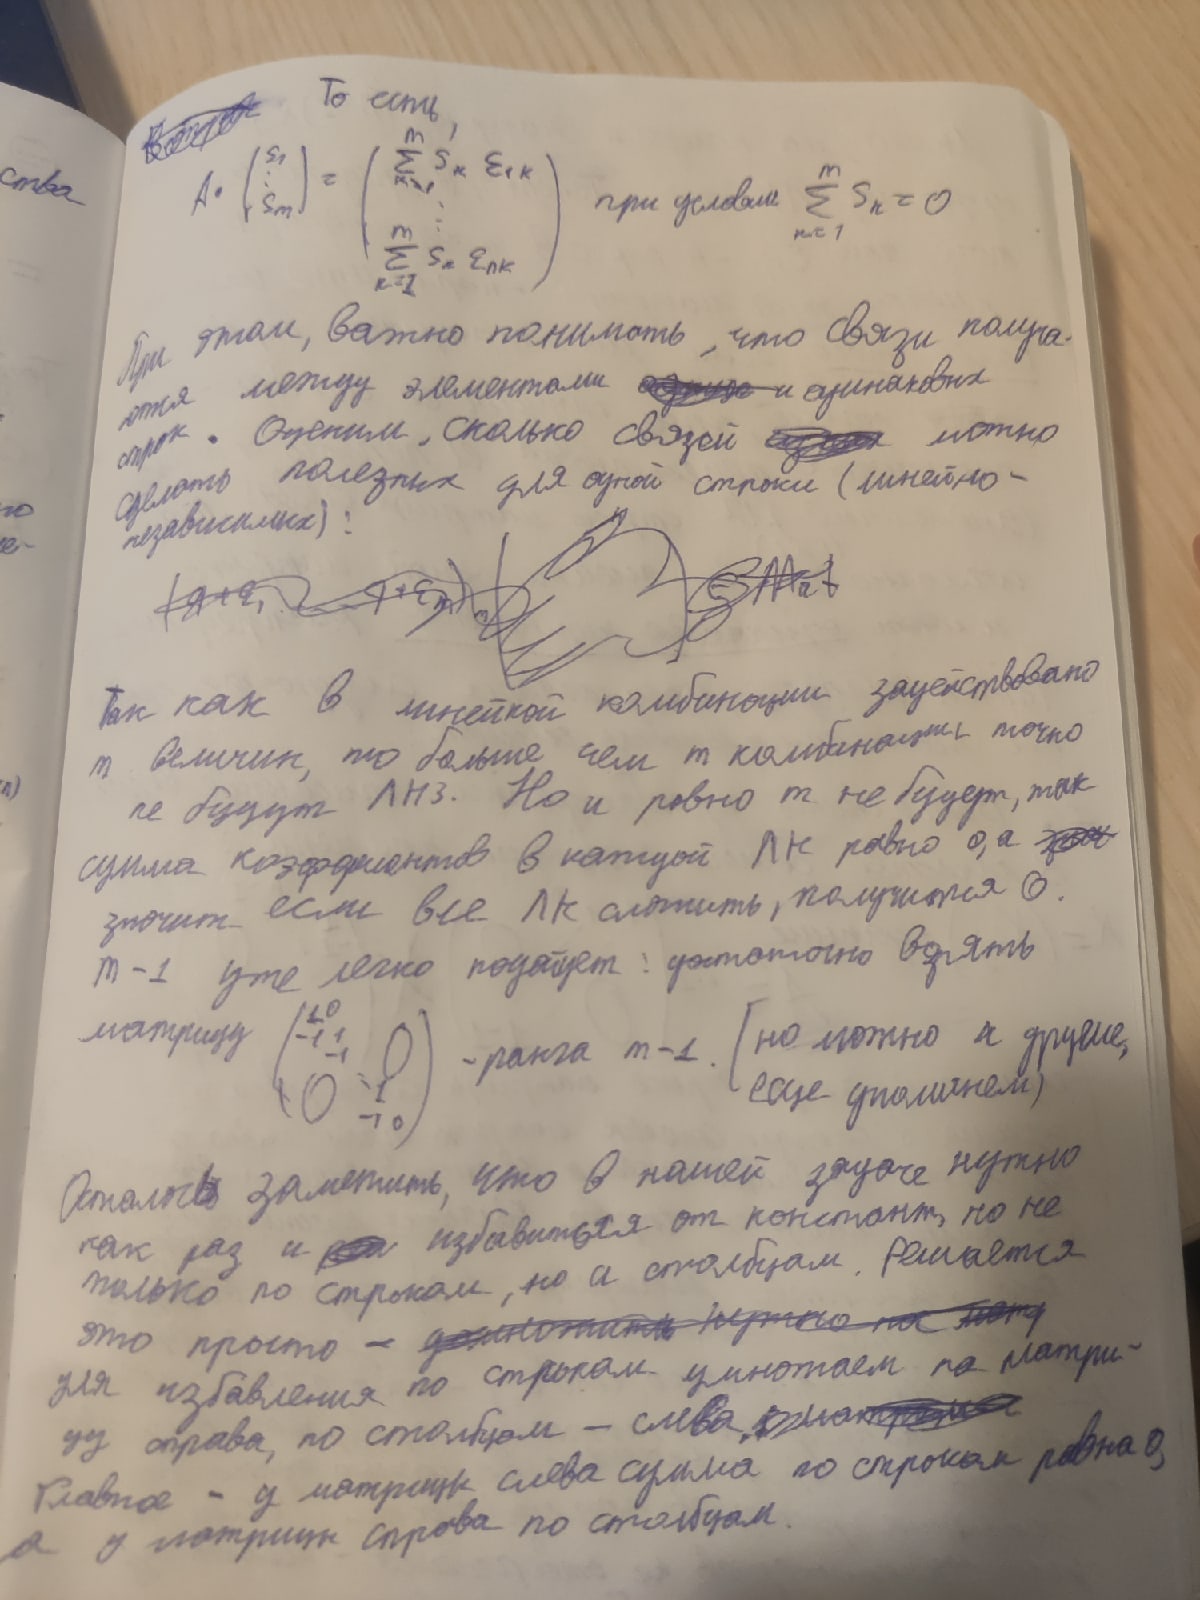 ства
То есть,
A · (ε₁ ⋮ Sₘ) = (∑_{k=1}^{m} Sₖ ε₁ₖ ⋮ ∑_{k=1}^{m} Sₖ εₙₖ) при условии ∑_{k=1}^{m} Sₖ = 0
При этом, важно понимать, что связи получа-
ются между элементами и одинаковых
строк. Оценим, сколько связей можно
сделать полезных для одной строки (линейно-
независимых):
Так как в линейной комбинации задействовано
m величин, то больше чем m комбинаций точно
не будут ЛНЗ. Но и ровно m не будет, так
сумма коэффициентов в каждой ЛК равно 0, а
значит если все ЛК сложить, получится 0.
m-1 уже легко подойдет: достаточно взять
матрицу (1 0 -1 1 -1 0 0 1 -1 0) - ранга m-1. (но можно и другие,
еще упомянем)
Осталось заметить, что в нашей задаче нужно
как раз и избавиться от констант, но не
только по строкам, но и столбцам. Решается
это просто -
для избавления по строкам умножаем на матри-
цу справа, по столбцам - слева.
Главное - у матрицы слева сумма по строкам равна 0,
а у матрицы справа по столбцам.